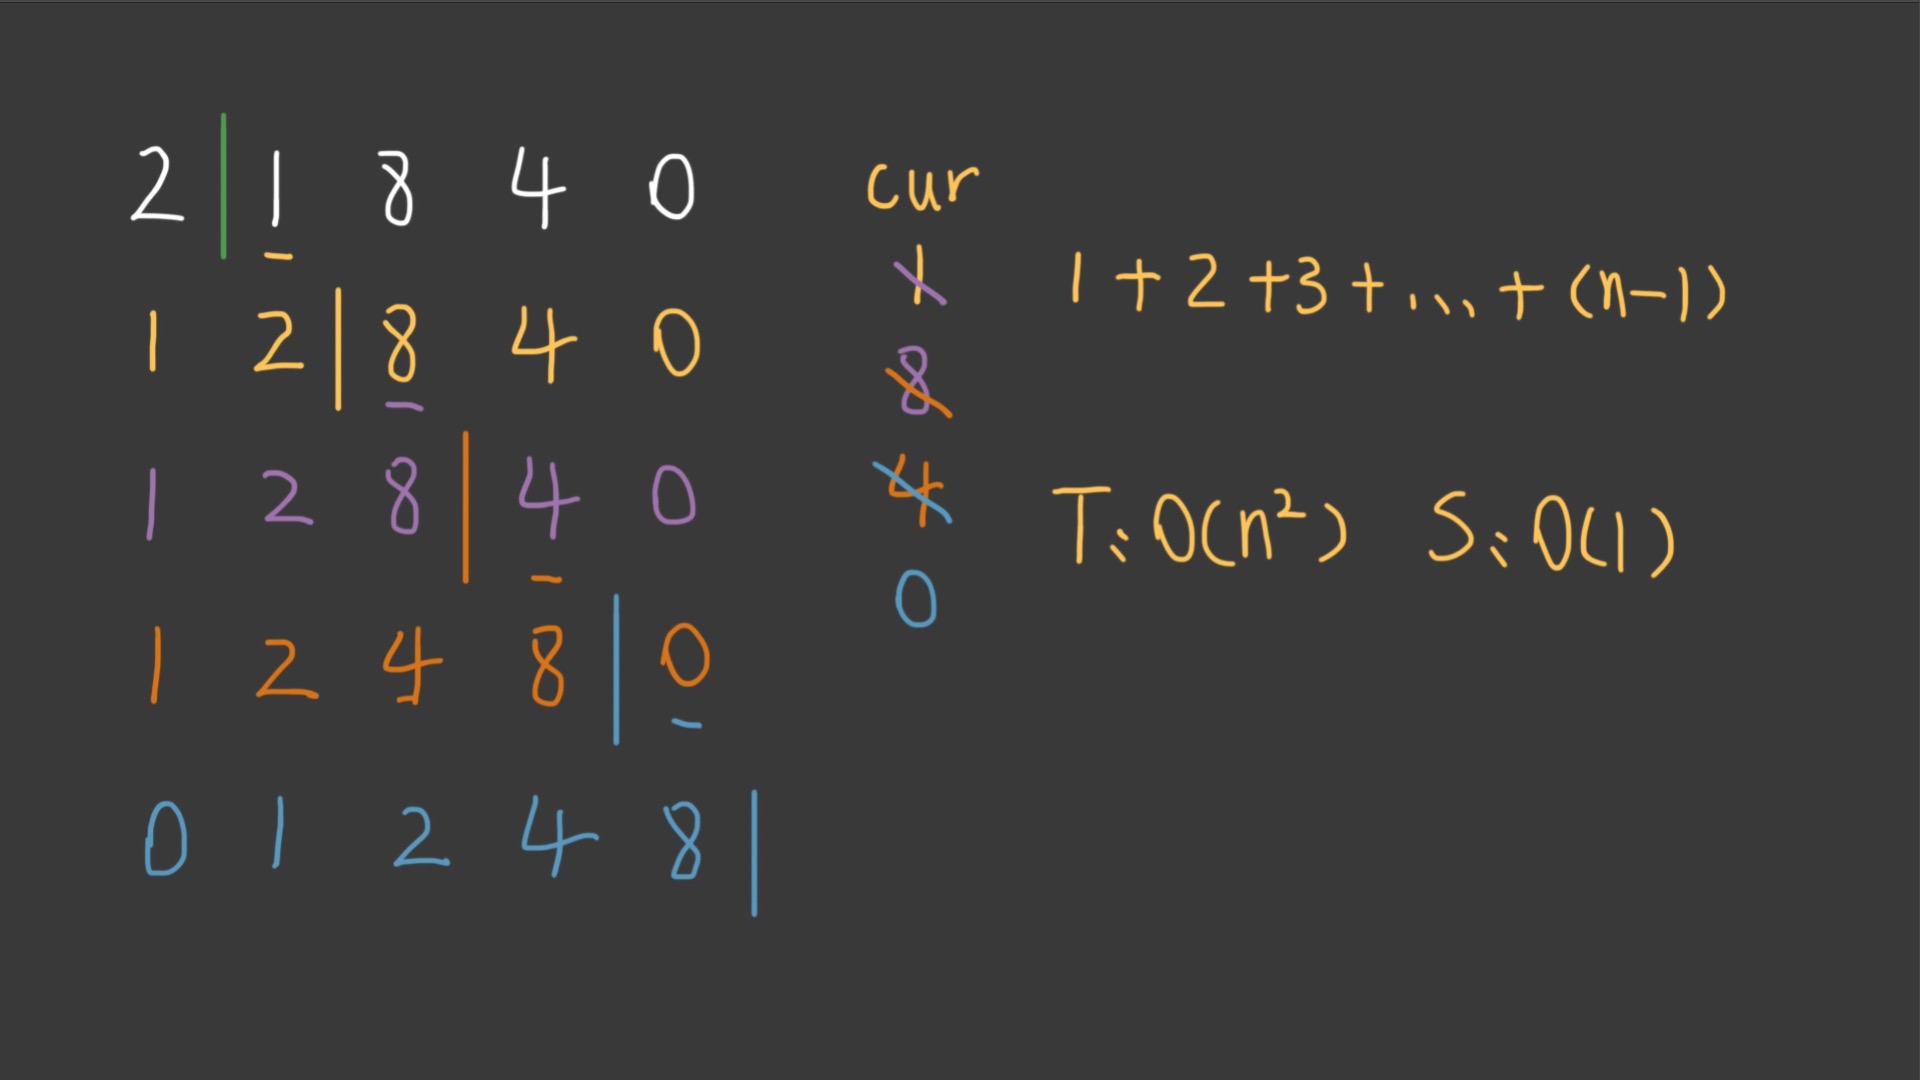 2 | 1 8 4 0
1 2 | 8 4 0
1 2 8 | 4 0
1 2 4 8 | 0
0 1 2 4 8 |
cur
1
8
4
0
1 + 2 + 3 + ... + (n-1)
T: O(n²) S: O(1)